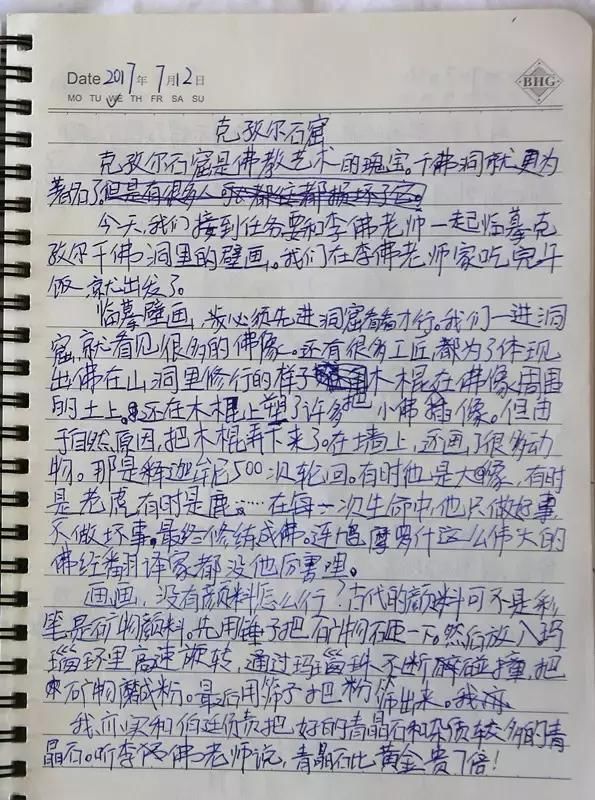 Date 2017年 7月12日
BHG
MO TU WE TH FR SA SU
克孜尔石窟
克孜尔石窟是佛教艺术的瑰宝。千佛洞就更为
著名了。但是有很多人 都 都损坏了它。
今天，我们接到任务要和李佛老师一起临摹克
孜尔千佛洞里的壁画。我们在李佛老师家吃完午
饭，就出发了。
临摹壁画，当必须先进洞窟看看才行。我们一进洞
窟，就看见很多的佛像。还有很多工匠都为了体现
出佛在山洞里修行的样子 木棍在佛像周围
的土上。还在木棍上塑了许多把小佛插像。但由
于自然原因，把木棍弄下来了。在墙上，还画了很多动
物。那是释迦牟尼500次轮回。有时他是大像，有时
是老虎，有时是鹿……在每一次生命中，他只做好事，
不做坏事。最终修练成佛。连鸠摩罗什这么伟大的
佛经翻译家都没他厉害哩。
画画，没有颜料怎么行？古代的颜料可不是彩
笔是矿物颜料。先用锤子把矿物石砸一下。然后放入玛
瑙环里高速旋转，通过玛瑙珠不断碰撞，把
矿物磨成粉。最后用筛子把粉筛出来。我亦
我亦实和伯廷负责把好的青晶石和杂质较多的青
晶石。听李佛老师说，青晶石比黄金贵7倍！